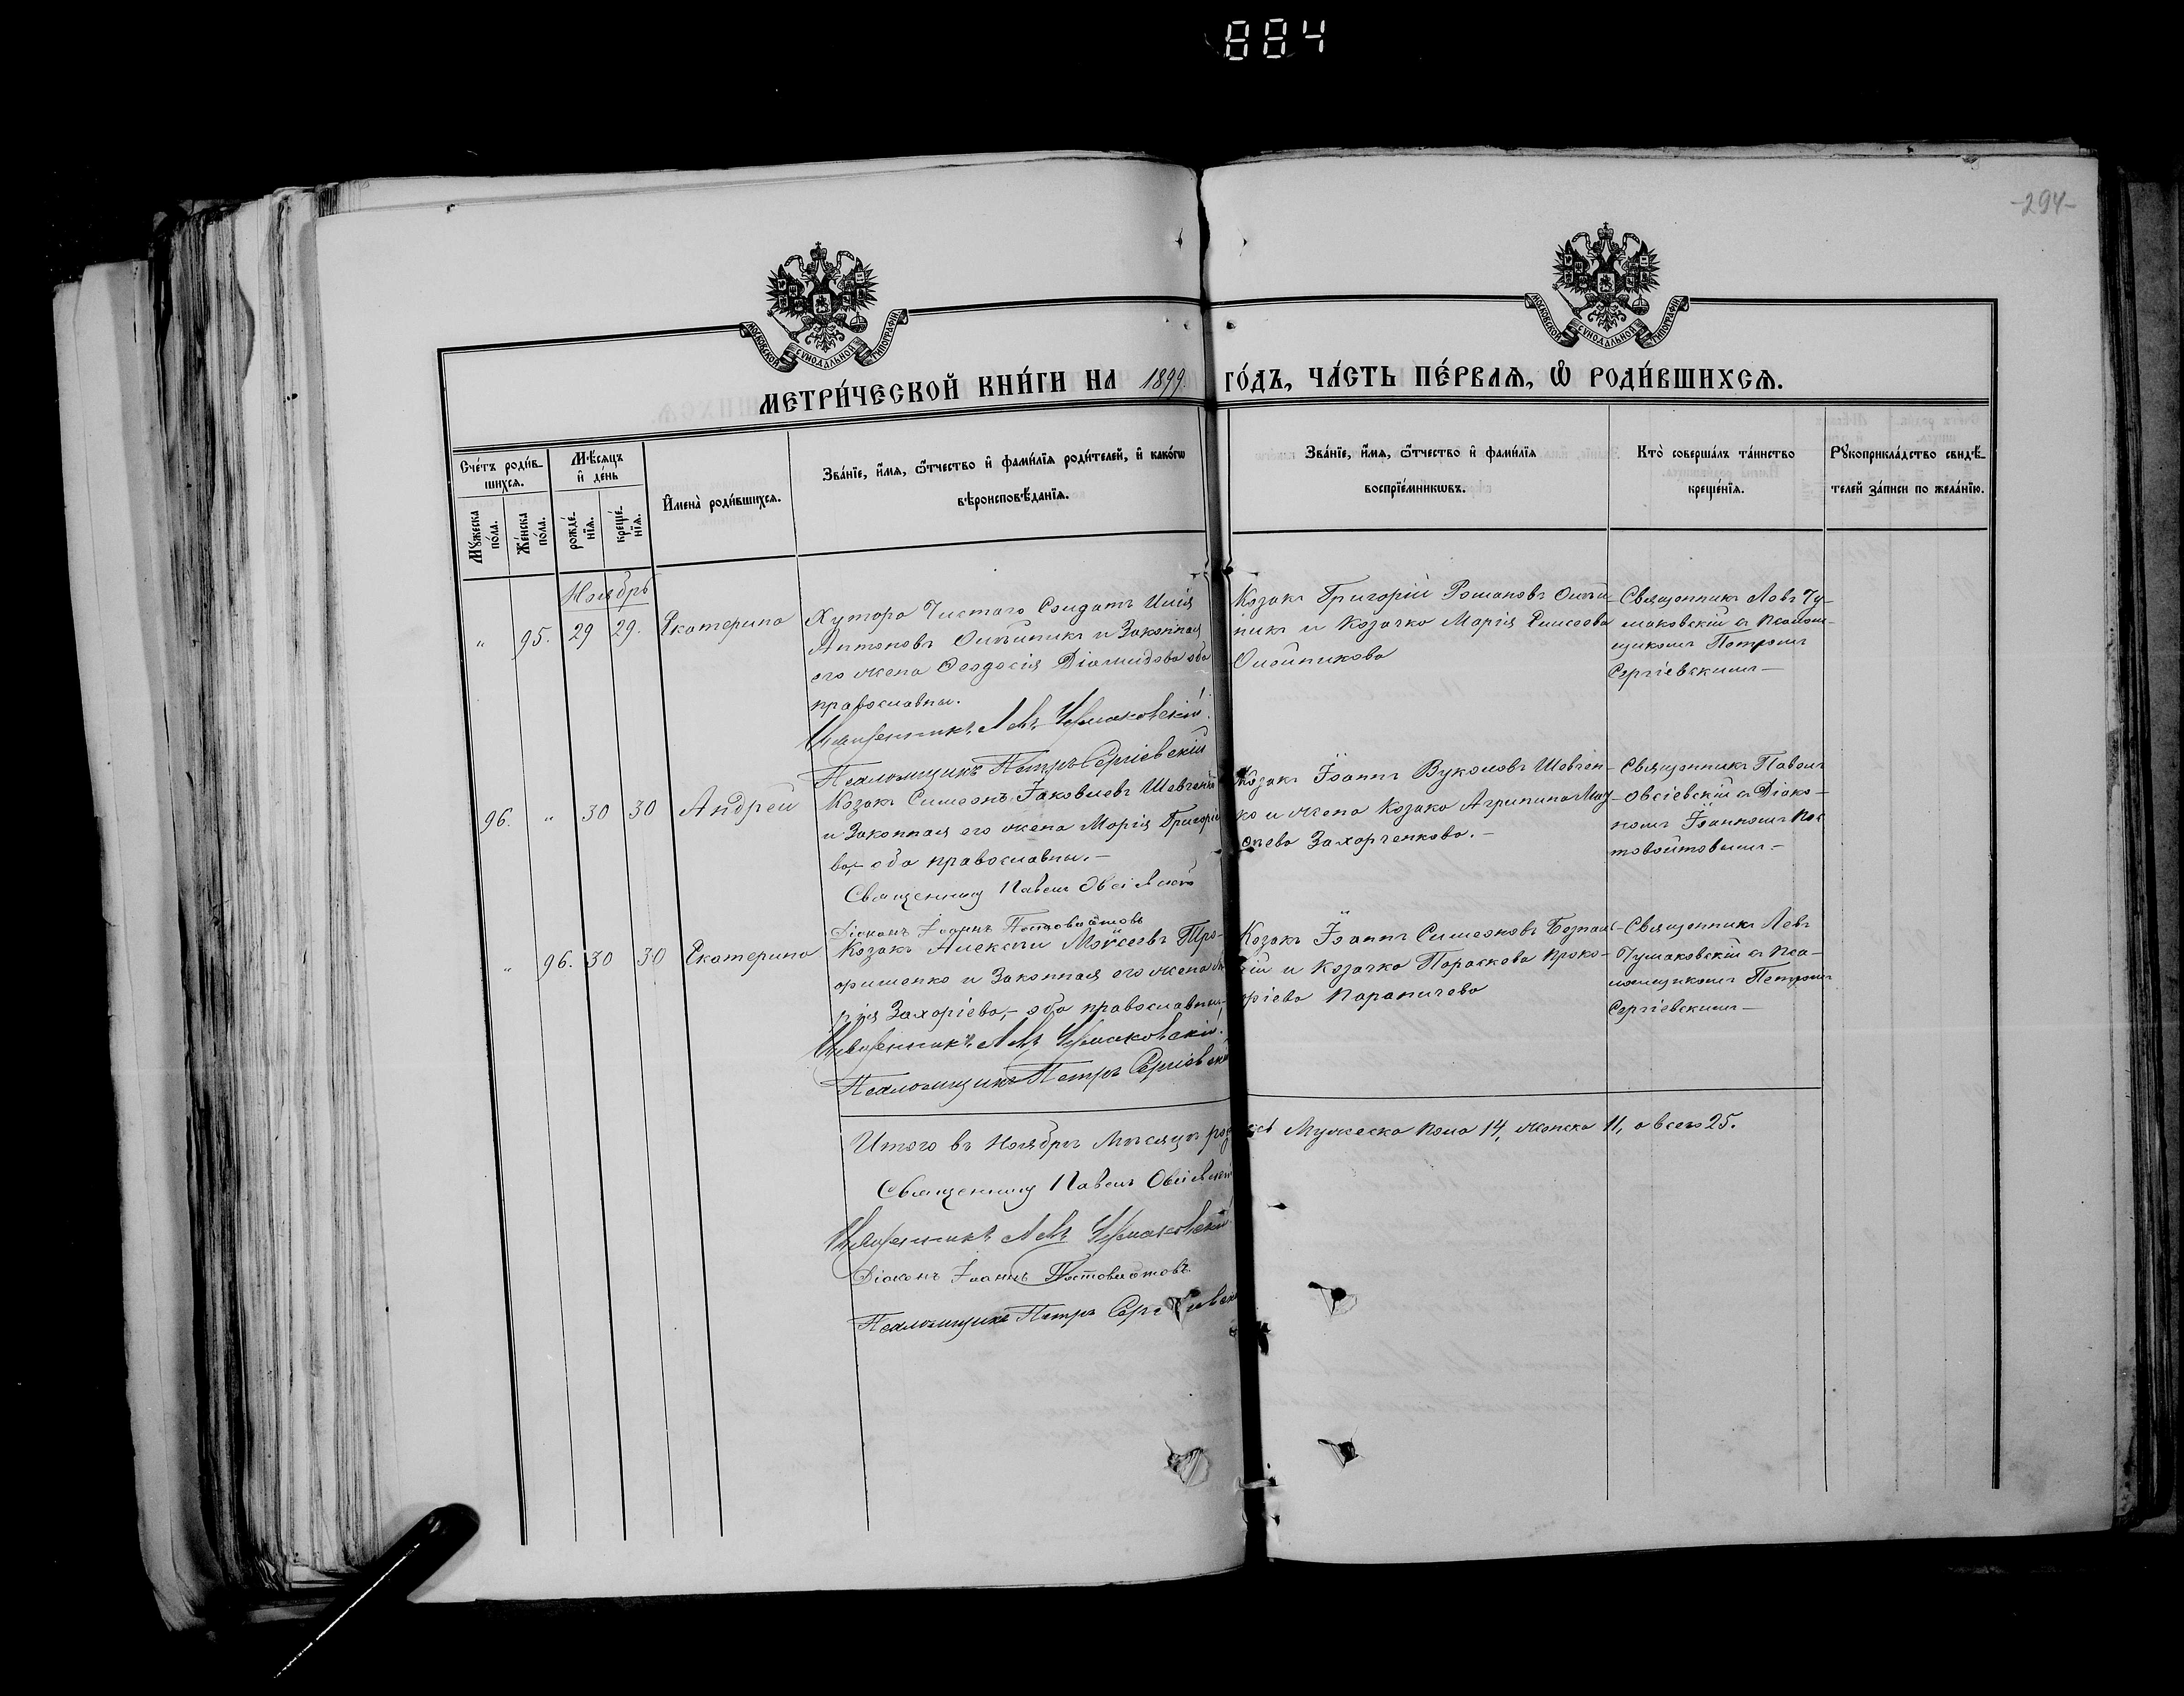 884
-294-
МОСКОВСКОЙ СѴНОДАЛЬНОЙ ТИПОГРАФІИ
МОСКОВСКОЙ СѴНОДАЛЬНОЙ ТИПОГРАФІИ
МЕТРИ́ЧЕСКОЙ КНИ́ГИ НА 1899. ГО́ДЪ, ЧА́СТЬ ПЕ́РВАѦ, Ѽ РОДИ́ВШИХСѦ.
Сче́тъ роди́в-
шихсѧ.
Мꙋжеска
по́ла.
Же́нска
по́ла.
Мѣ́сѧцъ
и҆ де́нь
рожде́-
нїѧ.
креще́-
нїѧ.
И҆мена̀ роди́вшихсѧ.
Зва́нїе, и҆́мѧ, ѻ҆́тчество и҆ фами́лїѧ роди́телей, и҆ како́гѡ
вѣроисповѣ́данїѧ.
Зва́нїе, и҆́мѧ, ѻ҆́тчество и҆ фами́лїѧ
воспрїе́мникѡвъ.
Кто̀ соверша́лъ та́инство
креще́нїѧ.
Рꙋкоприкла́дство свидѣ́-
телей за́писи по жела́нїю.
Ноябрь
" 95. 29 29. Екатерина
Хутора Чистаго Солдатъ Илія
Антоновъ Олійникъ и Законная
его жена Ѳеодосія Діомидова оба
православны.
Священникъ Левъ Чумаковскій
Псаломщикъ Петръ Сергіевскій
Козакъ Григорій Романовъ Олій-
никъ и Козачка Марія Елисеева
Олійникова
Священникъ Левъ Чу-
маковскій съ Псалом-
щикомъ Петромъ
Сергіевскимъ —
96. " 30 30 Андрей
Козакъ Симеонъ Іаковлевъ Шевченко
и Законная его жена Марія Григоріе
ва, – оба православны. –
Священникъ Павелъ Овсіевскій
Діаконъ Іоаннъ Постовойтовъ
Козакъ Іоаннъ Вуколовъ Шевчен-
ко и жена Козака Агрипина
Захарченкова. –
Священникъ Павелъ
Овсіевскій съ Діако-
номъ Іоанномъ Пос
товойтовымъ. –
" 96. 30 30 Екатерина
Козакъ Алексѣй Мойсеевъ Тро-
фименко и Законная его жена Ма
рія Захаріева, – оба православны. –
Священникъ Левъ Чумаковскій
Псаломщикъ Петръ Сергіевскій
Козакъ Іоаннъ Симеоновъ
и Козачка Параскева Проко-
Священникъ Левъ
Чумаковскій съ Пса-
ломщикомъ Петромъ
Сергіевскимъ —
Итого въ Ноябрѣ Мѣсяцѣ род сь Мужеска пола 14, женска 11, а всего 25.
Священникъ Павелъ Овсіевскій
Священникъ Левъ Чумаковскій
Діаконъ Іоаннъ Постовойтовъ
Псаломщикъ Петръ Сергіевскій